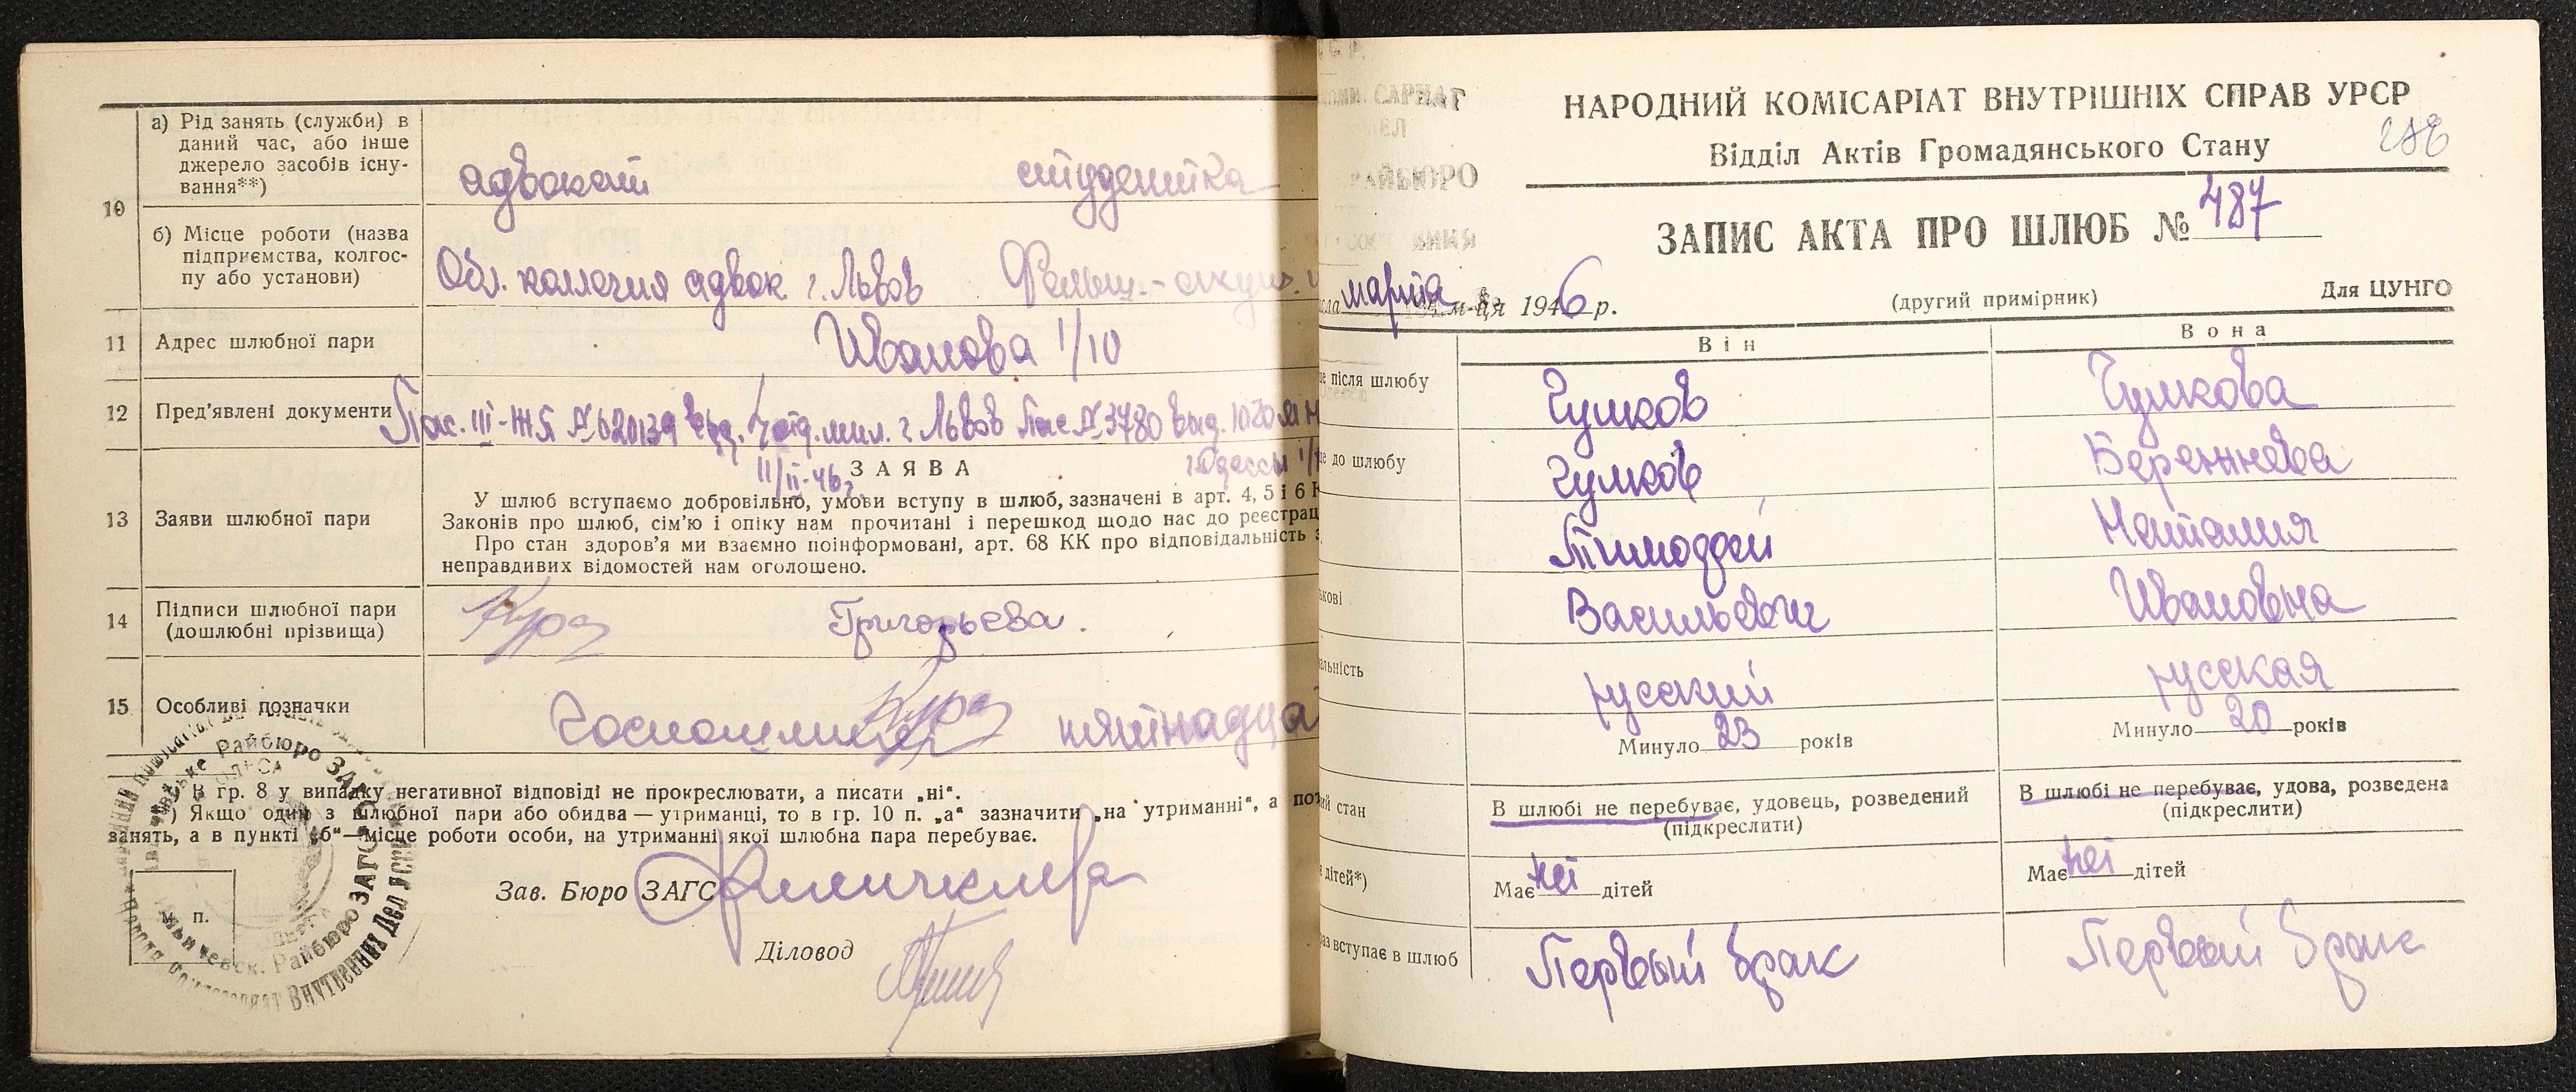 10
а) Рід занять (служби) в
даний час, або інше
джерело засобів існу-
вання**)
адвокат студентка
б) Місце роботи (назва
підприємства, колгос-
пу або установи)
Обл. коллегия адвок г. Львов Фельш.-акуш.
11 Адрес шлюбної пари
Иванова 1/10
12 Пред'явлені документи
Пас. III-ЖЯ № 620139 выд. 7 отд. мил. г Львов Пас № 3780 выд. 10 20 м
11/II-46 г. г. Одессы
13 Заяви шлюбної пари
ЗАЯВА
У шлюб вступаємо добровільно, умови вступу в шлюб, зазначені в арт. 4, 5 і 6
Законів про шлюб, сім'ю і опіку нам прочитані і перешкод щодо нас до реєстрац
Про стан здоров'я ми взаємно поінформовані, арт. 68 КК про відповідальність з
неправдивих відомостей нам оголошено.
14 Підписи шлюбної пари
(дошлюбні прізвища)
Григорьева.
15 Особливі дозначки
Госпошлина пятнадца
В гр. 8 у випадку негативної відповіді не прокреслювати, а писати „ні".
) Якщо один з шлюбної пари або обидва — утриманці, то в гр. 10 п. „а" зазначити „на утриманні", а пот
занять, а в пункті „б"—місце роботи особи, на утриманні якої шлюбна пара перебуває.
Зав. Бюро ЗАГС
М. п.
Діловод
НАРОДНИЙ КОМІСАРІАТ ВНУТРІШНІХ СПРАВ УРСР
Відділ Актів Громадянського Стану
ЗАПИС АКТА ПРО ШЛЮБ № 487
марта м-ця 1946 р.
(другий примірник)
Для ЦУНГО
Він Вона
після шлюбу Гулков Гулкова
до шлюбу Гулков Бережнева
Тимоффей Наталия
ькові Васильевич Ивановна
альність русский русская
Минуло 23 років Минуло 20 років
ий стан
В шлюбі не перебуває, удовець, розведений
(підкреслити)
В шлюбі не перебуває, удова, розведена
(підкреслити)
дітей*) Має неї дітей Має неї дітей
раз вступає в шлюб Первый брак Первый брак